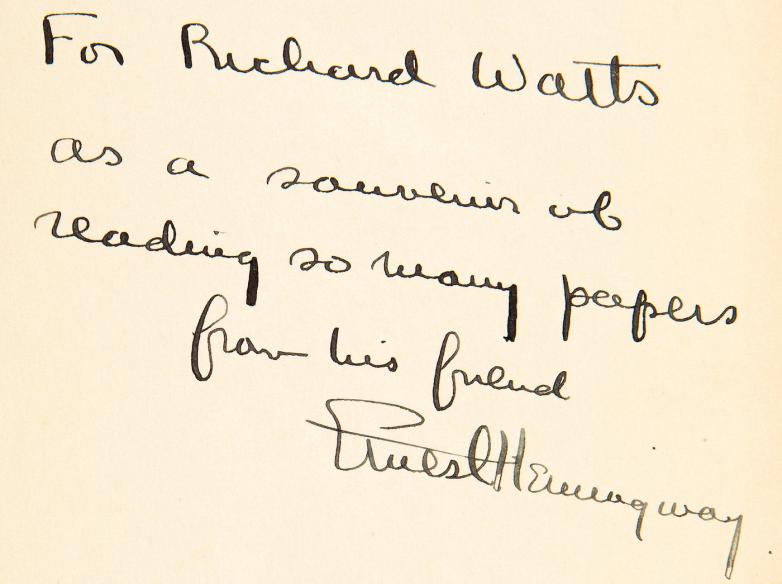 For Richard Watts
as a souvenir of
reading so many papers
from his friend
Ernest Hemingway